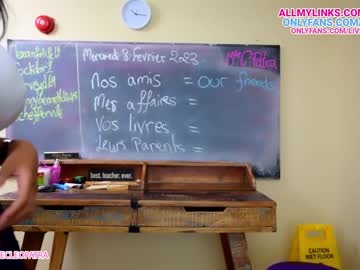 ALLMYLINKS.COM/
ONLYFANS.COM/
ONLYFANS.COM/LIV
Mercredi 8 Fevrier 2023
Mlle C. Patra
Nos amis = our friends
Mes affaires =
Vos livres =
Leurs Parents =
best. teacher. ever.
CAUTION
WET FLOOR
ECLEOPATRA